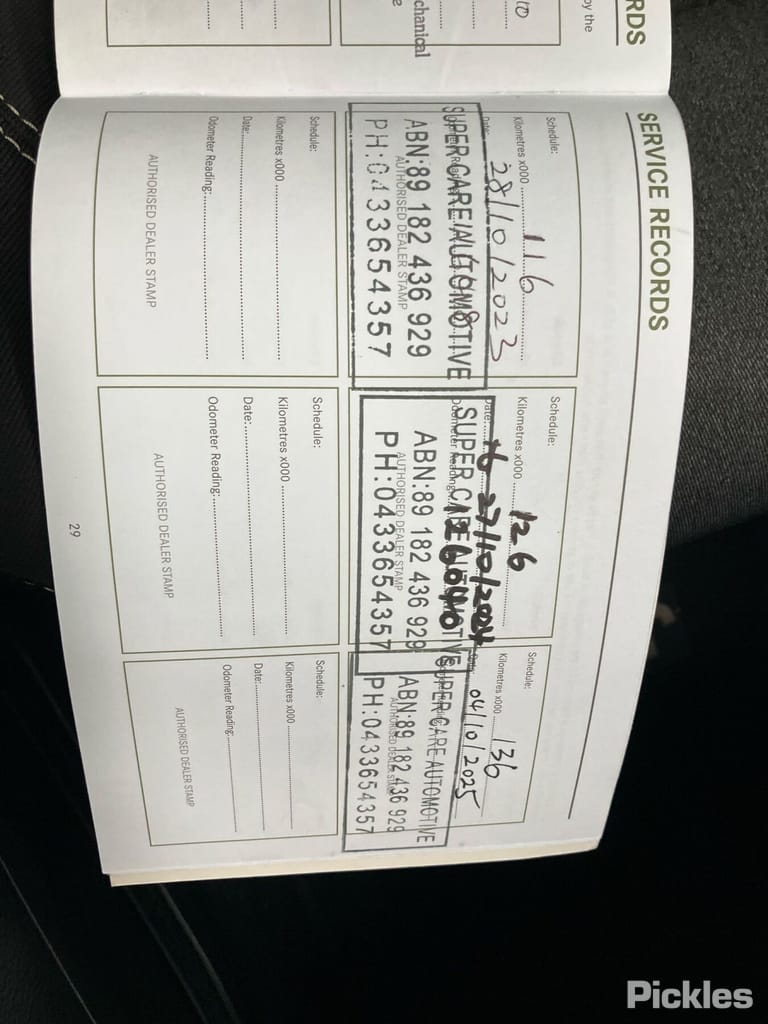 RDS
by the
10
chanical
e
SERVICE RECORDS
Schedule:
Kilometres x000 116
Date: 28/10/2023
Odometer Reading:
SUPER CARE AUTOMOTIVE
ABN:89 182 436 929
AUTHORISED DEALER STAMP
PH:0433654357
Schedule:
Kilometres x000 126
Date: 27/10/2024
Odometer Reading: 126040
SUPER CARE AUTOMOTIVE
ABN:89 182 436 929
AUTHORISED DEALER STAMP
PH:0433654357
Schedule:
Kilometres x000 136
Date: 04/10/2025
SUPER CARE AUTOMOTIVE
ABN:89 182 436 929
AUTHORISED DEALER STAMP
PH:0433654357
Schedule:
Kilometres x000
Date:
Odometer Reading:
AUTHORISED DEALER STAMP
Schedule:
Kilometres x000
Date:
Odometer Reading:
AUTHORISED DEALER STAMP
Schedule:
Kilometres x000
Date:
Odometer Reading:
AUTHORISED DEALER STAMP
29
Pickles